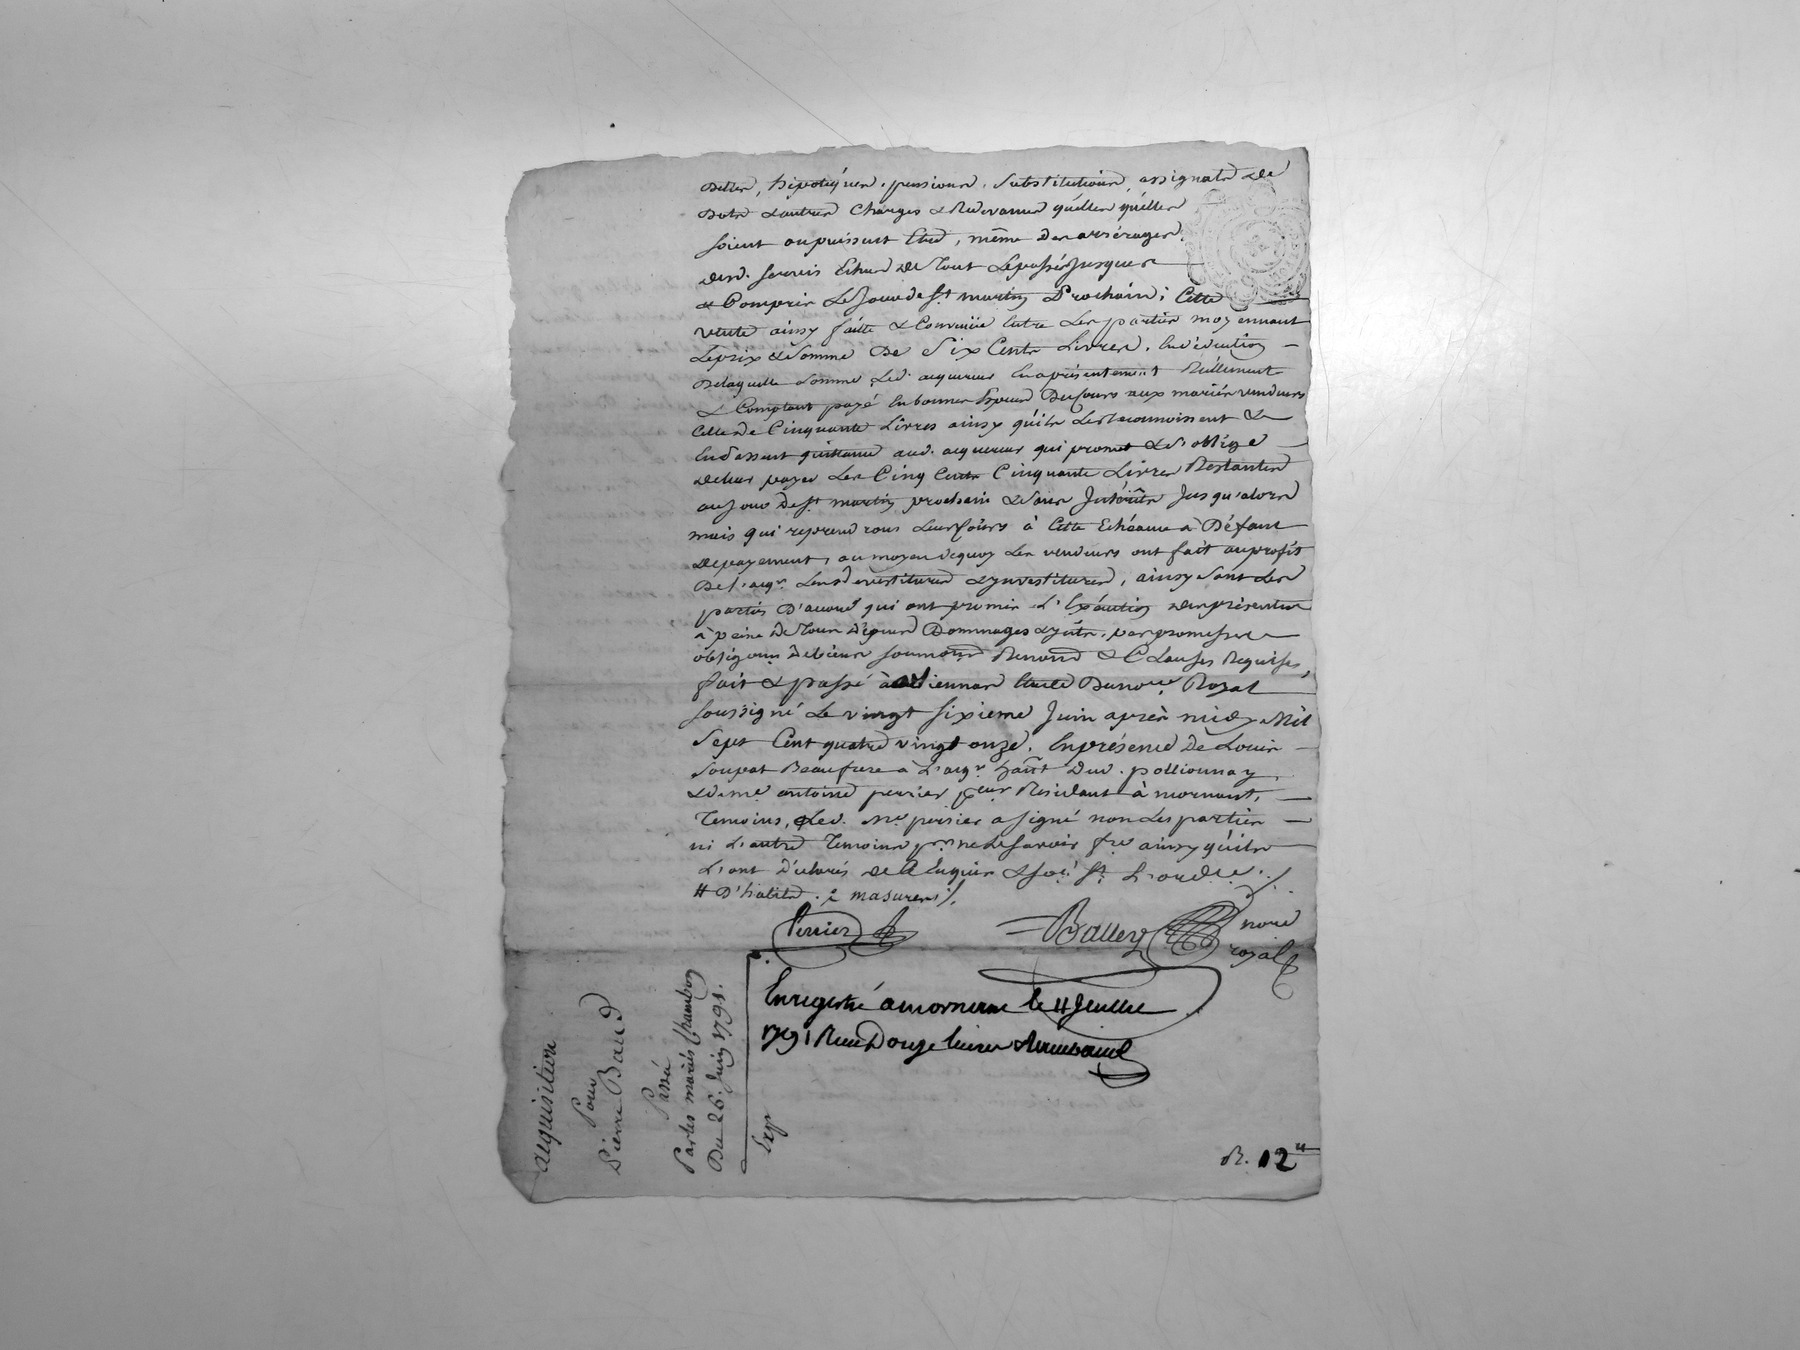 Dettes, hipotéques, pensions, substitutions, assignats de
Dots & autres Charges & Redevances quélles quélles
soient ou puissent Etre, même des arrérages
desd. servis Echus de Tout Le passé Jusques
& Compris Le Jour de st martin Prochain; Cette
vente ainsy faitte & Convenüe Entre Les parties moyennant
Le prix & Somme De Six Cents Livres. En déduction
De laquelle somme Led. acquereur En a présentement Réellement
& Comptant payé En bonnes Especes De Cours aux mariés vendeurs
Celle de Cinquante Livres ainsy qu'ils Le Reconnoissent &
En passent quittance aud. acquereur qui promet & s'oblige
de Leur payer Les Cinq Cents Cinquante Livres Restantes
au Jour de st martin prochain & sans Intérêts Jusqu'alors
mais qui reprendrons Leur Cours à Cette Echéance à Défaut
de payement, au moyen de quoy Les vendeurs ont fait au profit
De L'acqr. Les devestitures & ynvestitures, ainsy sont Les
parties D'accord qui ont promis L'Exécution des présentes
à peine De Tous Dépens Dommages & yts. par promesses
obligons De biens soumons Renons & Clauses Requises,
fait & passé à Etude Du nore Royal
soussigné Le vingt sixieme Juin après midy Mil
Sept Cent quatre vingt onze. En présence De Louis
Soupat Beaufrere à L'acqr. hant Dud. pollionnay
& de me antoine perrier Résidant à mornant,
Temoins, Led. Me perrier a signé non Les parties
ni L'autre Temoins pr. ne Le savoir fre ainsy qu'ils
L'ont Déclarés de ce Enquis &
# D'habits . & masures /.
Perrier
Balley
nore
royal
Enregistré a mornant le 4 Jeuillet
1791 Recu Douze livres
acquisition
Pour
Pierre Baud
Passée
Par les mariés Chambon
Du 26. Juin 1791.
Exp
R. 12#